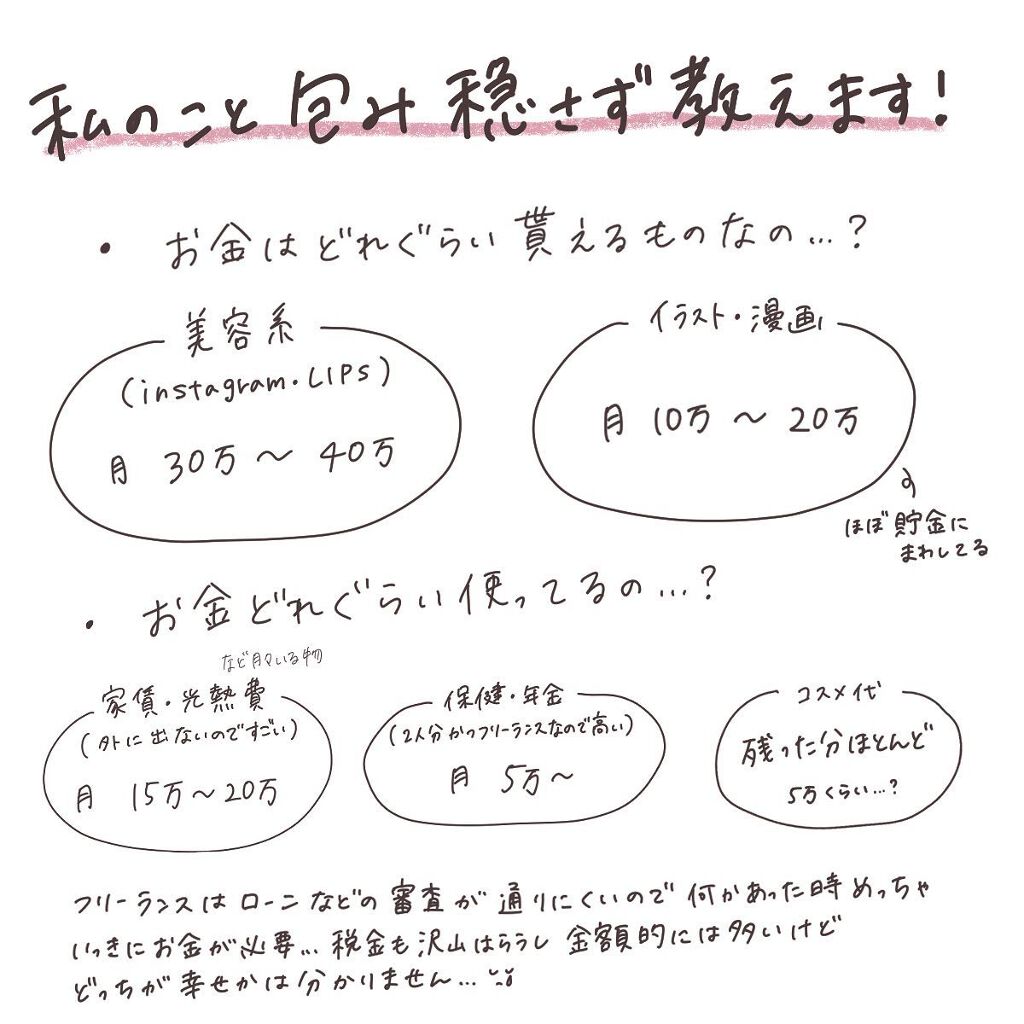 私のこと包み穏さず教えます!
・お金はどれぐらい貰えるものなの…?
美容系
(instagram・LIPS)
月 30万〜40万
イラスト・漫画
月 10万〜20万
ほぼ貯金に
まわしてる
・お金どれぐらい使ってるの…?
など月々いる物
家賃・光熱費
(外に出ないのですごい)
月 15万〜20万
保健・年金
(2人分かつフリーランスなので高い)
月 5万〜
コスメ代
残った分ほとんど
5万くらい…?
フリーランスはローンなどの審査が通りにくいので何かあった時めっちゃ
いっきにお金が必要… 税金も沢山はらうし 金額的には多いけど
どっちが幸せかは分かりません…